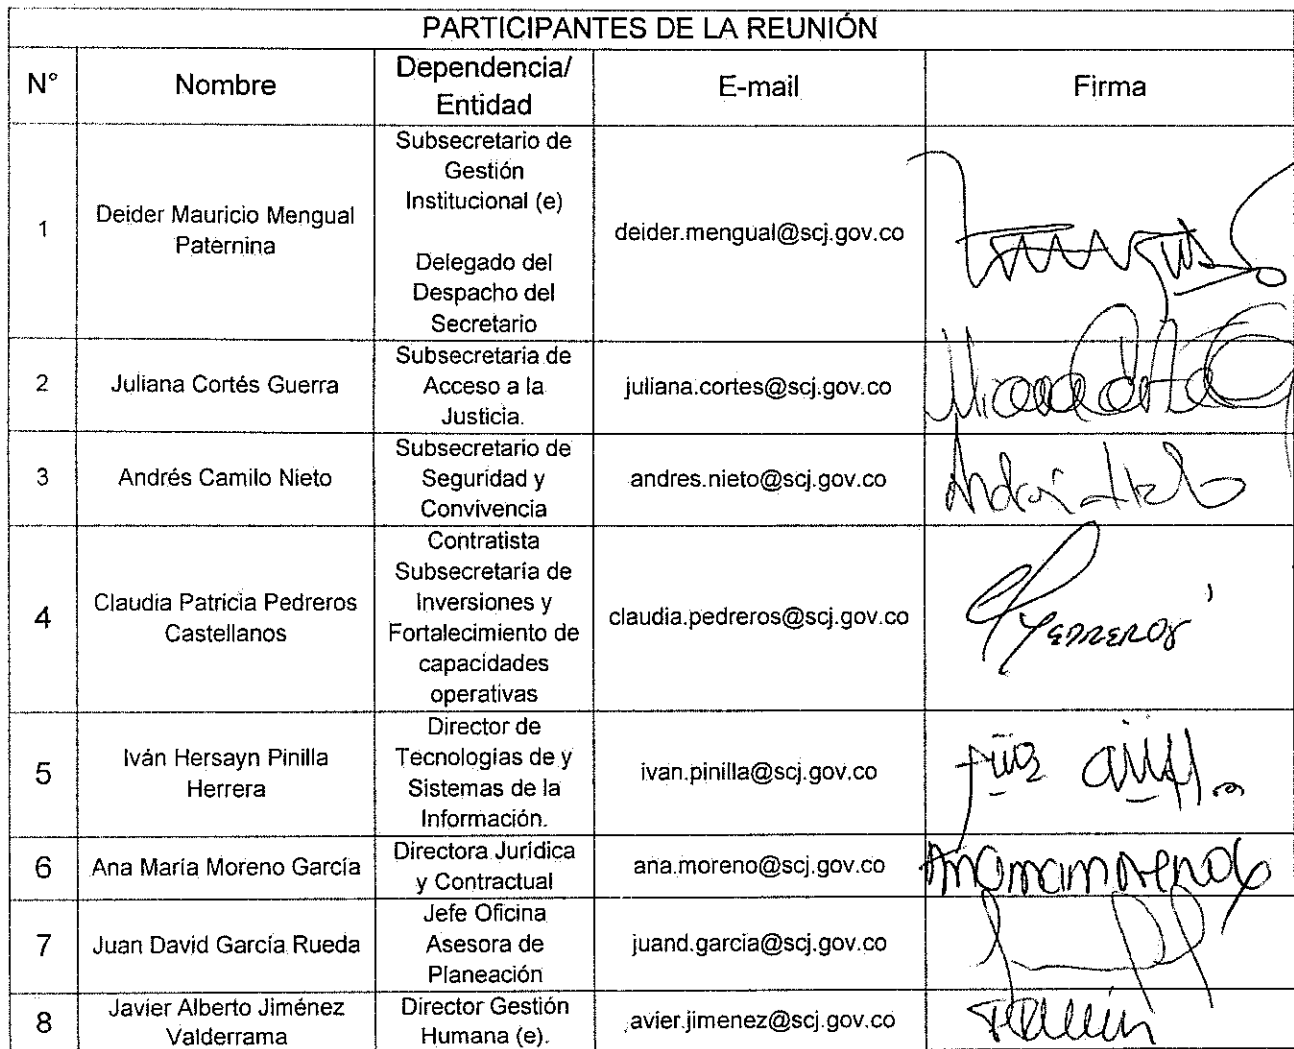 PARTICIPANTES DE LA REUNIÓN
N° Nombre Dependencia/ Entidad E-mail Firma
1
Deider Mauricio Mengual
Paternina
Subsecretario de
Gestión
Institucional (e)
Delegado del
Despacho del
Secretario
deider.mengual@scj.gov.co
2
Juliana Cortés Guerra
Subsecretaria de
Acceso a la
Justicia.
juliana.cortes@scj.gov.co
3
Andrés Camilo Nieto
Subsecretario de
Seguridad y
Convivencia
andres.nieto@scj.gov.co
4
Claudia Patricia Pedreros
Castellanos
Contratista
Subsecretaría de
Inversiones y
Fortalecimiento de
capacidades
operativas
claudia.pedreros@scj.gov.co
5
Iván Hersayn Pinilla
Herrera
Director de
Tecnologías de y
Sistemas de la
Información.
ivan.pinilla@scj.gov.co
6
Ana María Moreno García
Directora Jurídica
y Contractual
ana.moreno@scj.gov.co
7
Juan David García Rueda
Jefe Oficina
Asesora de
Planeación
juand.garcia@scj.gov.co
8
Javier Alberto Jiménez
Valderrama
Director Gestión
Humana (e).
avier.jimenez@scj.gov.co